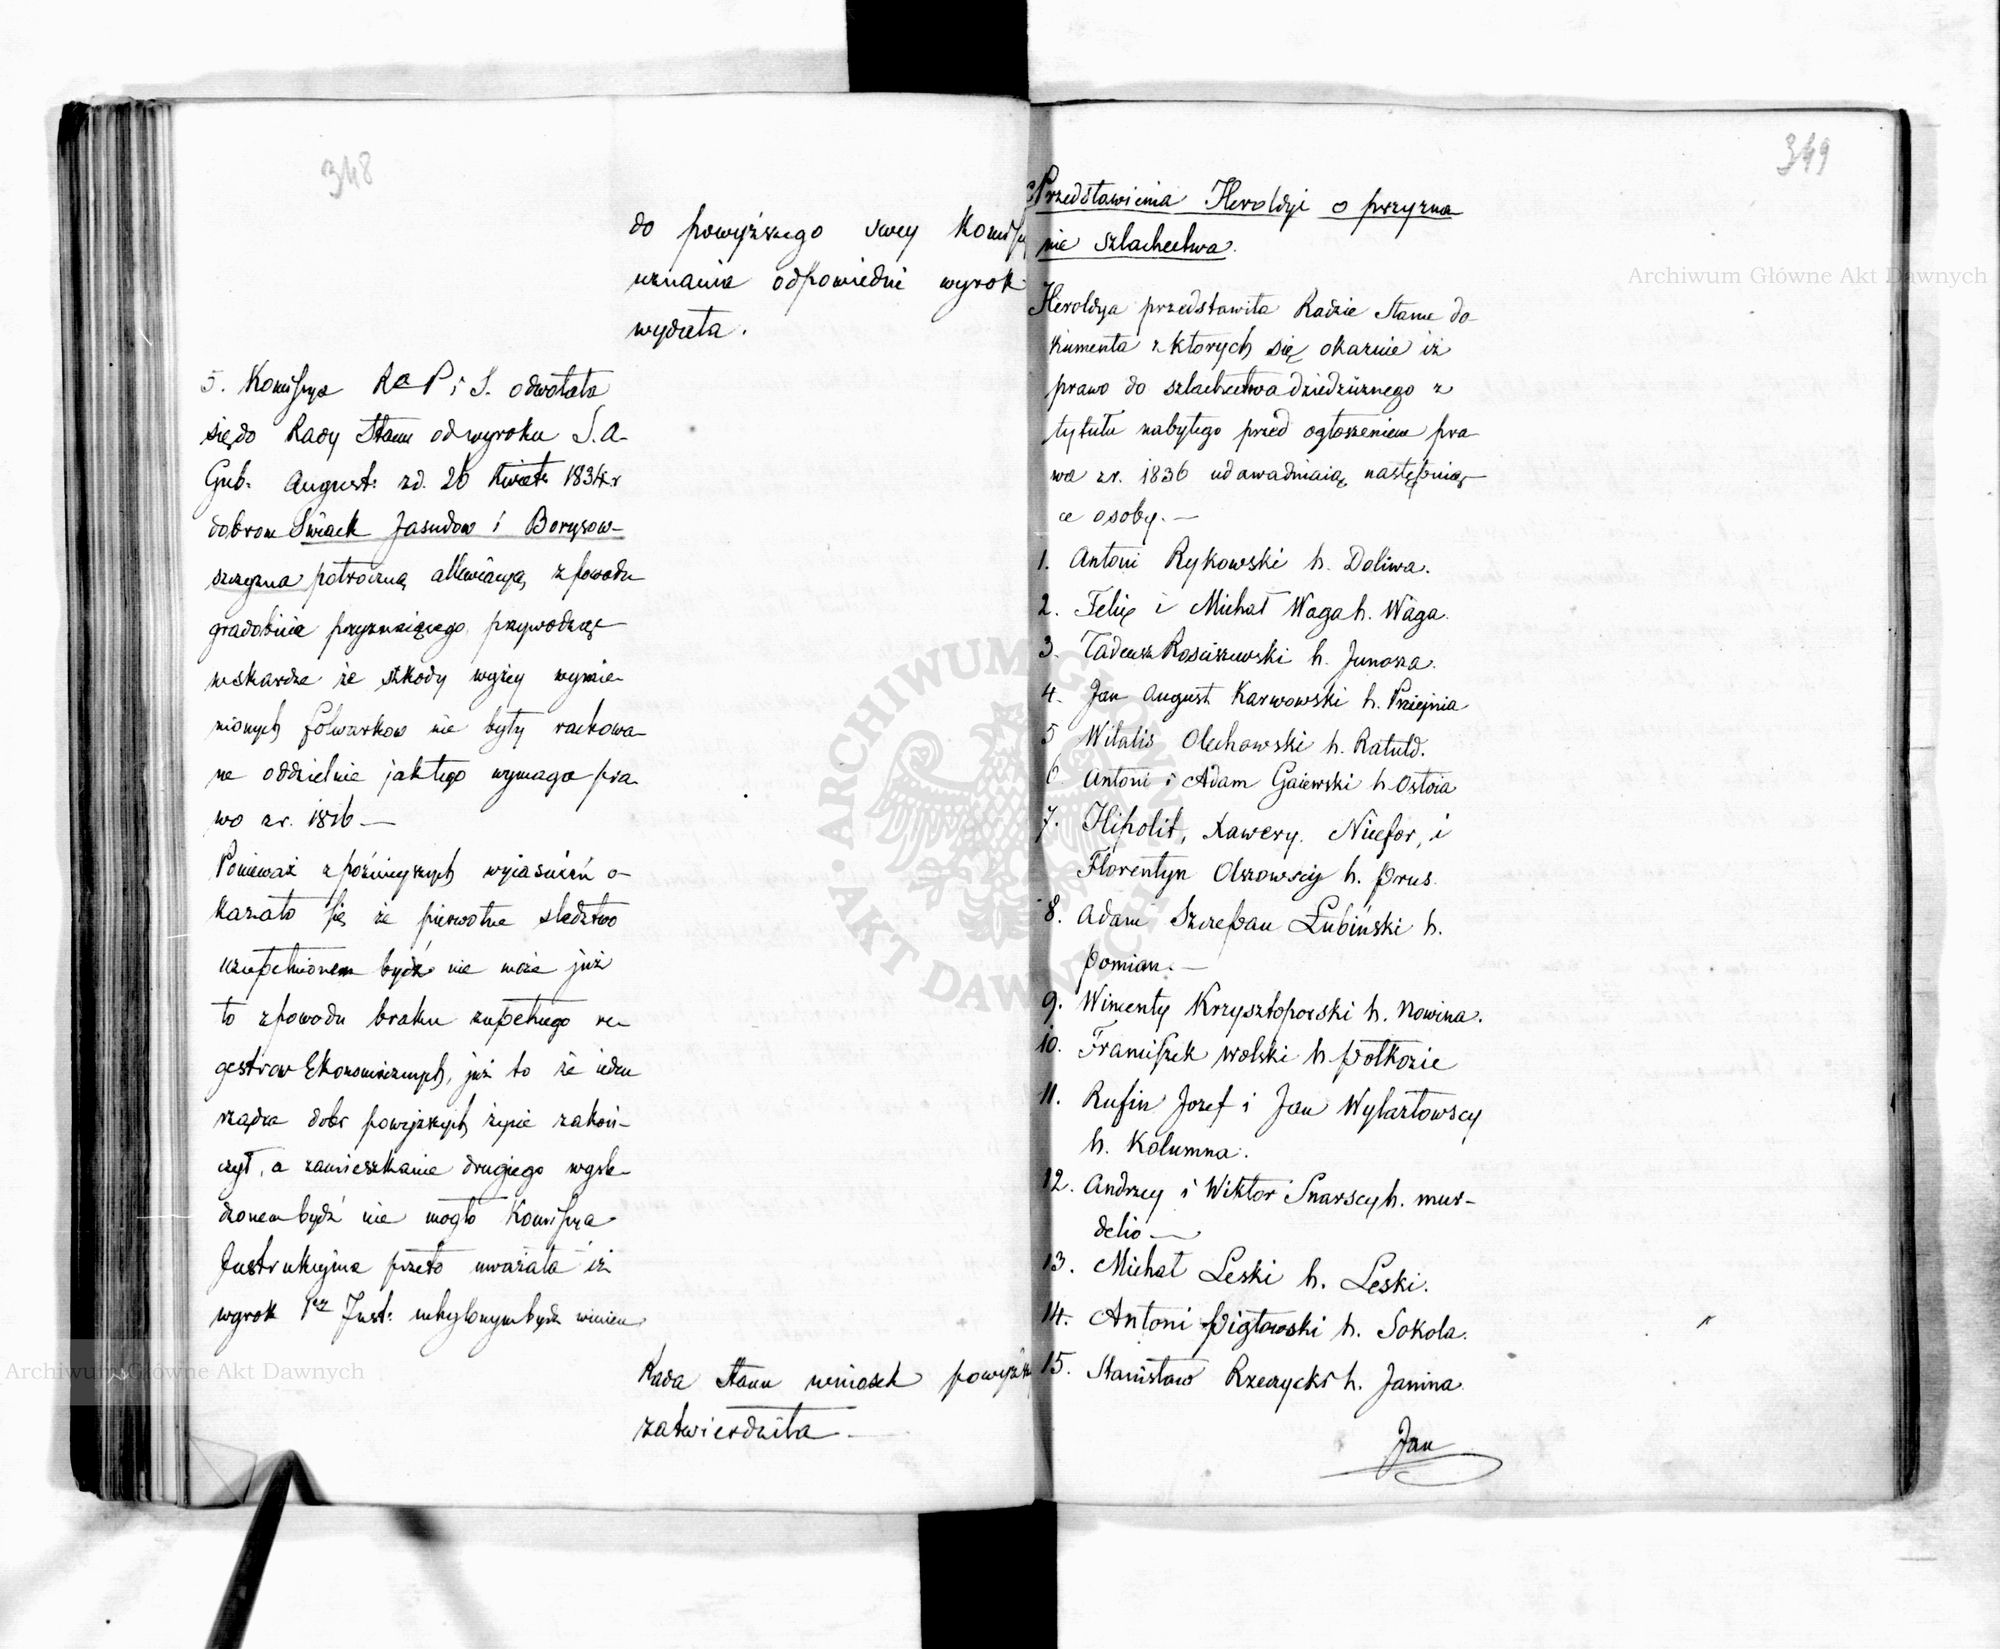 348
do powyższego swey Komisyi
uznania odpowiedni wyrok
wydała.
5. Komissya R a P i S. odwołała
się do Rady Stanu od wyroku S. A
Gub. August: z d. 26 Kwiet: 1834 r
dobrom Swiack Jasudow i Borysow-
szczyzna potroczną allewiacyą z powodu
gradobicia przyznaiącego, przywodząc
w skardze że szkody wyżey wymie-
nionych folwarkow nie były rachowa-
ne oddzielnie jak tego wymaga pra-
wo z r. 1816 —
Ponieważ z pózniejszych wyiasnień o-
kazało się że pierwotne sledztwo
uzupełnionem bydź nie może już
to z powodu braku zupełnego re-
gestrow Ekonomicznych, już to że ieden
rządca dobr powyższych życie zakoń-
czył, a zamieszkanie drugiego wysle-
dzonem bydź nie mogło Komissya
Instrukcyjna przeto uważała iż
wyrok 1ez Inst: uchylonym bydz winien
Rada Stanu wniosek powyższy
zatwierdziła —
349
Przedstawienia Heroldyi o przyzna
nie szlachectwa.
Heroldya przedstawiła Radzie Stanu do-
kumenta z ktorych się okazuie iż
prawo do szlachectwa dziedzicznego z
tytułu nabytego przed ogłoszeniem pra
wa z r. 1836 udawadniaią następuią-
ce osoby. —
1. Antoni Rykowski h. Doliwa.
2. Felix i Michał Waga h. Waga.
3. Tadeusz Rosciszewski h. Junosza.
4. Jan August Karwowski h. Pniejnia
5 Witalis Olechowski h. Ratuld.
6 Antoni i Adam Gaiewski h Ostoia
7. Hipolit, Xawery. Nicefor, i
Florentyn Olszowscy h. Prus.
8. Adam Szczepan Łubiński h.
Pomian. —
9. Wincenty Krzysztoporski h. Nowina.
10. Franciszek Wolski h Połkozic
11. Rufin Jozef i Jan Wylazłowscy
h. Kolumna.
12. Andrzey i Wiktor Snarscy h. Mur-
delio —
13. Michał Leski h. Leski.
14. Antoni Pigłowski h. Sokola.
15. Stanisław Rzeczycki h. Janina.
Jan
Archiwum Główne Akt Dawnych
Archiwum Główne Akt Dawnych
ARCHIWUM GŁÓWNE AKT DAWNYCH